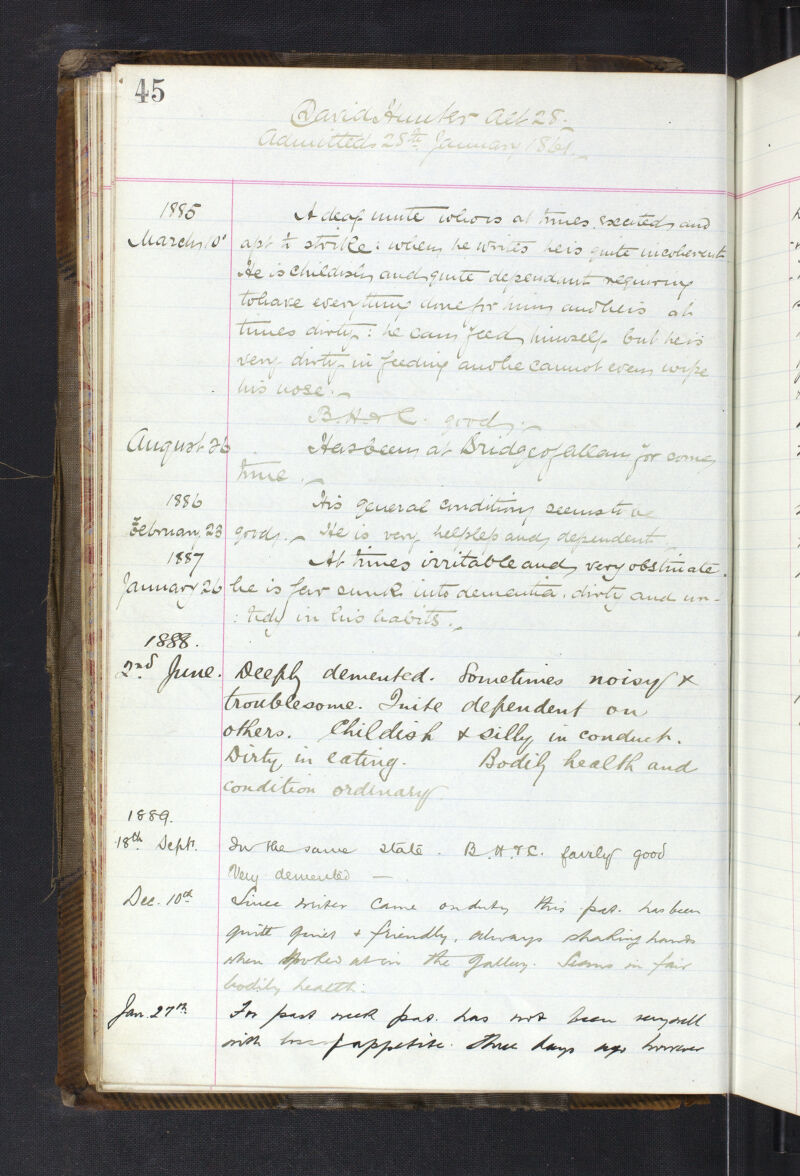 45
David Hunter aet 28.
Admitted 28th January 1861.
1885
March 10th
A deaf mute who is at times excited and
apt to strike: when he writes he is quite incoherent
He is childish and quite dependant requiring
to have everything done for him and he is at
times dirty: he can feed himself but he is
very dirty in feeding and he cannot even wipe
his nose.
B.H. & C. good.
August 26
Has been at Bridge of Allan for some
time.
1886
His general condition seems to be
February 23
good. He is very helpless and dependent
1887
At times irritable and very obstinate.
January 26
he is far sunk into dementia. dirty and un-
:tidy in his habits.
1888.
2nd June.
Deeply demented. Sometimes noisy &
troublesome. Quite dependent on
others. Childish & silly in conduct.
Dirty in eating. Bodily health and
condition ordinary
1889.
18th Sept.
In the same state. B.H.&C. fairly good
Very demented —
Dec. 10th
Since writer came on duty this pat. has been
quite quiet & friendly, always shaking hands
when spoken at in the Gallery. Seems in fair
bodily health:
Jan. 27th
For past week pat. has not been very well
with loss of appetite. three days ago however